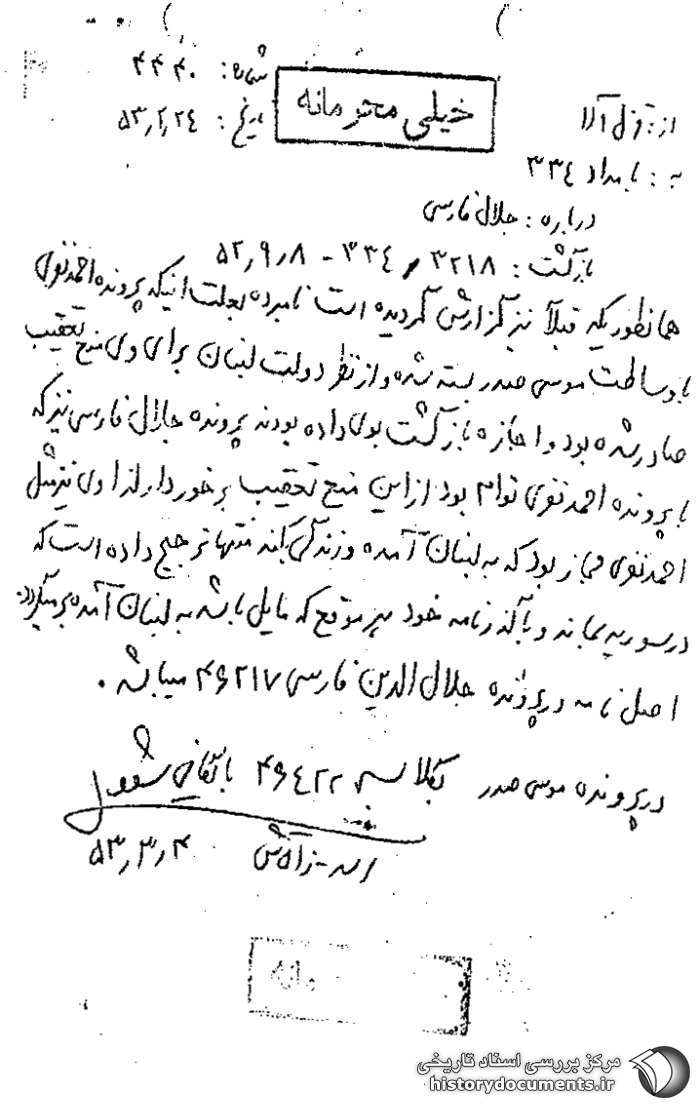 شماره: ۴۴۴۰
خیلی محرمانه
تاریخ: ۵۳/۲/۲۴
از:
به: بامداد ۳۳۴
درباره: جلال فارسی
بازگشت: ۳۲۱۸/۳۳۴ - ۵۲/۹/۸
همانطوریکه قبلاً نیز گزارش گردیده است نامبرده بعلت اینکه پرونده احمد نفری
با وساطت موسی صدر بسته شده و از نظر دولت لبنان برای وی منع تعقیب
صادر شده بود و اجازه بازگشت بوی داده بودند پرونده جلال فارسی نیز که
با پرونده احمد نفری توام بود از این منع تعقیب برخوردار لذا وی نیز مثل
احمد نفری مجاز بود که به لبنان آمده و زندگی کند منتها ترجیح داده است که
در سوریه بماند و با گذرنامه خود هر موقع که مایل باشد به لبنان آمده برمیگردد.
اصل نامه در پرونده جلال الدین فارسی ۴۶۲۱۷ میباشد.
در پرونده موسی صدر بکلاسه ۴۶۴۲۲ بایگانی شود
۵۳/۳/۴
مرکز بررسی اسناد تاریخی
historydocuments.ir